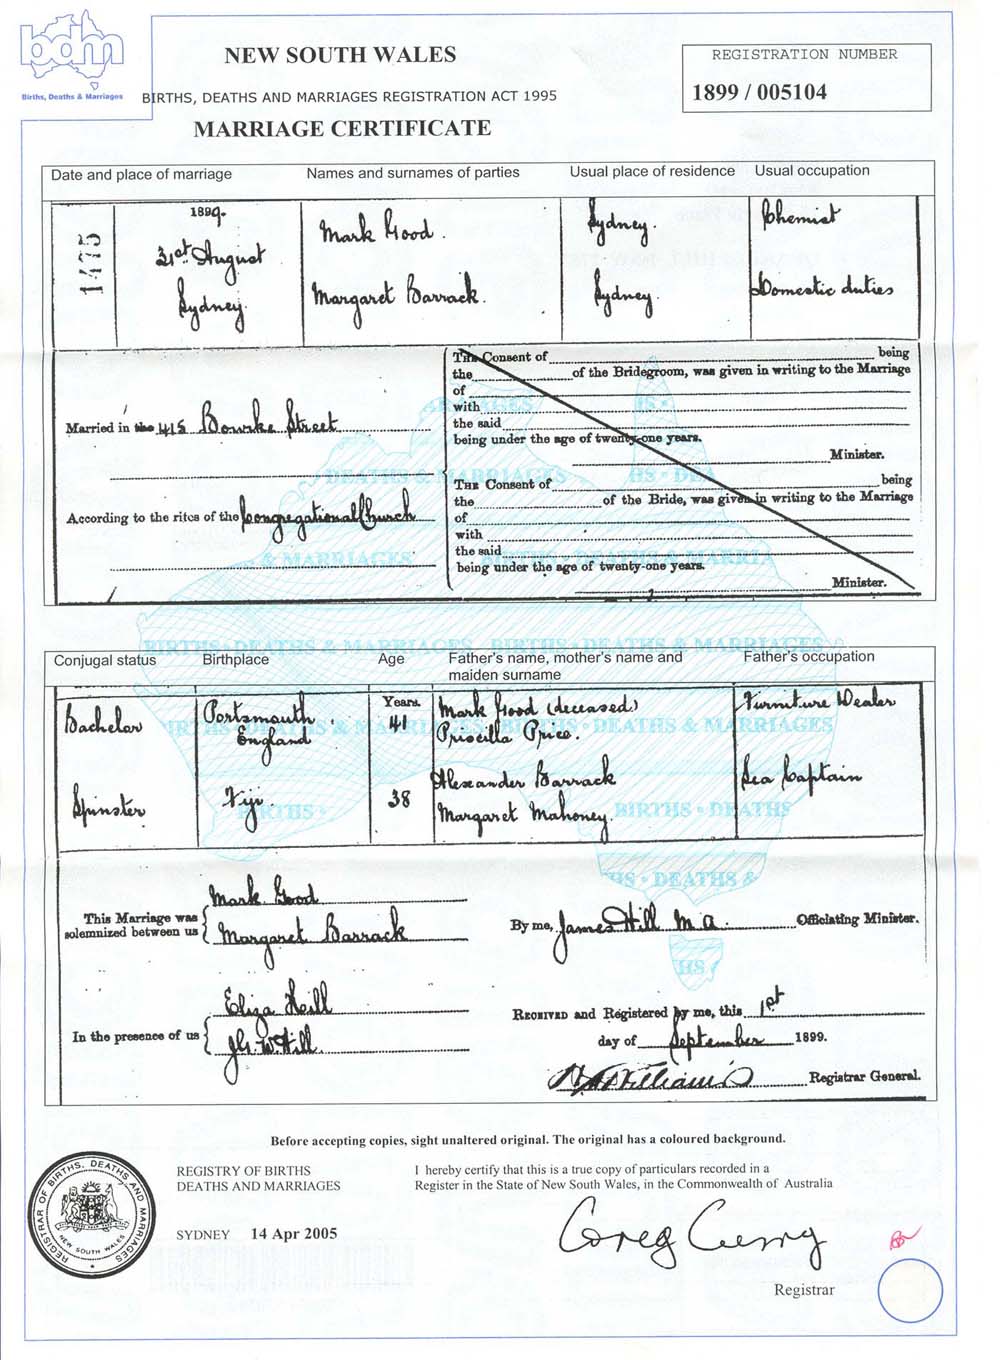 bdm
Births, Deaths & Marriages
NEW SOUTH WALES
BIRTHS, DEATHS AND MARRIAGES REGISTRATION ACT 1995
MARRIAGE CERTIFICATE
REGISTRATION NUMBER
1899 / 005104
Date and place of marriage Names and surnames of parties Usual place of residence Usual occupation
1475
1899.
31st August
Sydney.
Mark Good.
Margaret Barrack.
Sydney.
Sydney.
Chemist
Domestic duties
Married in the 415 Bourke Street
According to the rites of the Congregational Church
THE Consent of being
the of the Bridegroom, was given in writing to the Marriage
of
with
the said
being under the age of twenty-one years.
Minister.
THE Consent of being
the of the Bride, was given in writing to the Marriage
of
with
the said
being under the age of twenty-one years.
Minister.
Conjugal status Birthplace Age Father's name, mother's name and maiden surname Father's occupation
Bachelor Portsmouth England Years. 41 Mark Good (deceased) Priscilla Price. Furniture Dealer
Spinster Fiji. 38 Alexander Barrack Margaret Mahoney. Sea Captain
This Marriage was solemnized between us
Mark Good
Margaret Barrack
By me, James Hill M.A. Officiating Minister.
In the presence of us
Eliza Hill
W. Hill
RECEIVED and Registered by me, this 1st
day of September 1899.
Williams Registrar General.
Before accepting copies, sight unaltered original. The original has a coloured background.
REGISTRY OF BIRTHS
DEATHS AND MARRIAGES
I hereby certify that this is a true copy of particulars recorded in a
Register in the State of New South Wales, in the Commonwealth of Australia
SYDNEY 14 Apr 2005
Greg Curry
Registrar
REGISTRAR OF BIRTHS, DEATHS AND MARRIAGES
NEW SOUTH WALES